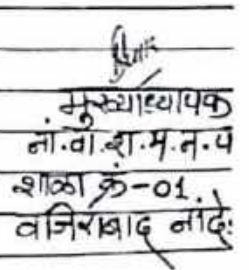 मुख्याध्यापक
नां.वा.श.म.न.प
शाळा क्रं-01
वजिराबाद नांदे.